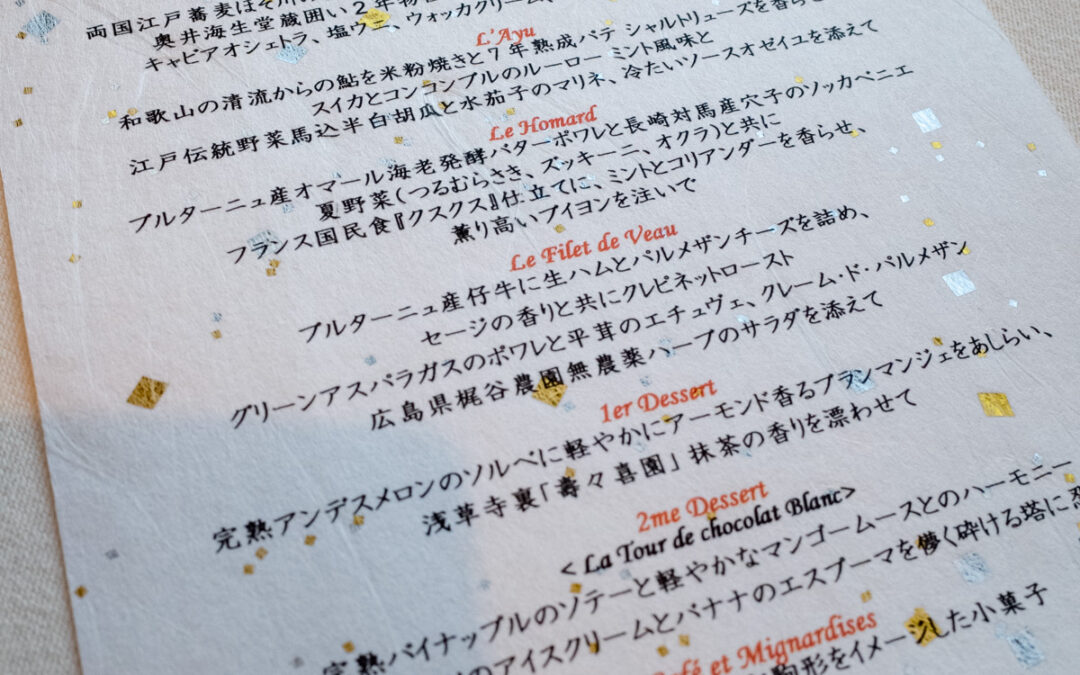 両国江戸蕎麦ほそ川の
奥井海生堂蔵囲い2年物昆
キャビアオシェトラ、塩ウニ、ウォッカクリーム、
L'Ayu
和歌山の清流からの鮎を米粉焼きと7年熟成パテ シャルトリューズを香らせ
スイカとコンコンブルのルーロー ミント風味と
江戸伝統野菜馬込半白胡瓜と水茄子のマリネ、冷たいソースオゼイユを添えて
Le Homard
ブルターニュ産オマール海老発酵バターポワレと長崎対馬産穴子のソッカベニエ
夏野菜(つるむらさき、ズッキーニ、オクラ)と共に
フランス国民食『クスクス』仕立てに、ミントとコリアンダーを香らせ、
薫り高いブイヨンを注いで
Le Filet de Veau
ブルターニュ産仔牛に生ハムとパルメザンチーズを詰め、
セージの香りと共にクレピネットロースト
グリーンアスパラガスのポワレと平茸のエチュヴェ、クレーム・ド・パルメザン
広島県梶谷農園無農薬ハーブのサラダを添えて
1er Dessert
完熟アンデスメロンのソルベに軽やかにアーモンド香るブランマンジェをあしらい、
浅草寺裏「壽々喜園」抹茶の香りを漂わせて
2me Dessert
< La Tour de chocolat Blanc>
完熟パイナップルのソテーと軽やかなマンゴームースとのハーモニー
のアイスクリームとバナナのエスプーマを儚く砕ける塔に忍
Café et Mignardises
駒形をイメージした小菓子